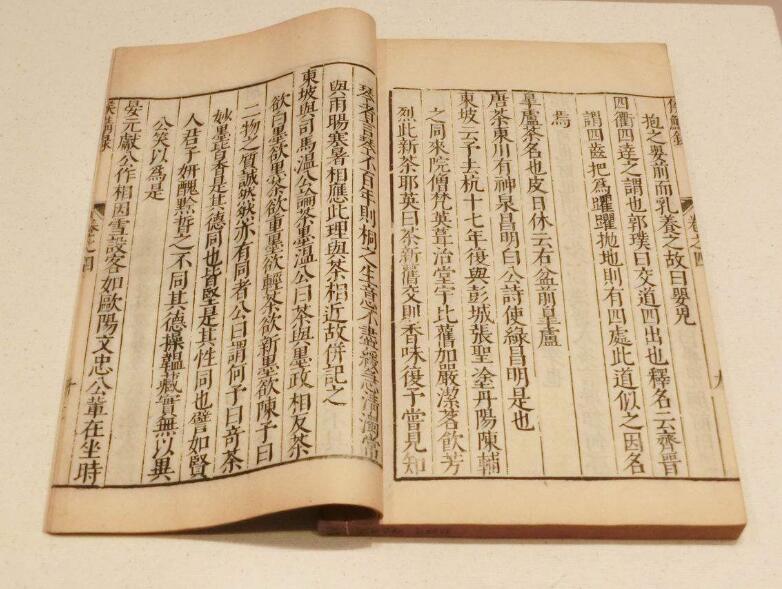 侯鯖錄 卷之四 九
抱之嬰前而乳養之故曰嬰兒
四衢四達之謂也郭璞曰交道四出也釋名云齊晉
謂四齒把爲躍躍抛地則有四處此道似之因名
焉
皐盧茶名也皮日休云石盆前皐盧
唐茶東川有神泉昌明白公詩使綠昌明是也
東坡云予去杭十七年復與彭城張聖塗丹陽陳輔
之同來院僧梵英葺治堂宇比舊加嚴潔茗飲芳
烈此新茶耶英曰茶新舊交則香味復予嘗見知
琴者言琴不百年則桐之生意不盡緩急清濁常
與雨暘寒暑相應此理與茶相近故併記之
東坡與司馬溫公論茶墨溫公曰茶與墨政相反茶
欲白墨欲黑茶欲重墨欲輕茶欲新墨欲陳予曰
二物之質誠然然亦有同者公曰謂何予曰奇茶
妙墨皆香是其德同也皆堅是其性同也譬如賢
人君子妍醜黔晳之不同其德操韞藏實無以異
公笑以為是
晏元獻公作相因雪設客如歐陽文忠公輩在坐時
侯鯖錄 卷之四 十